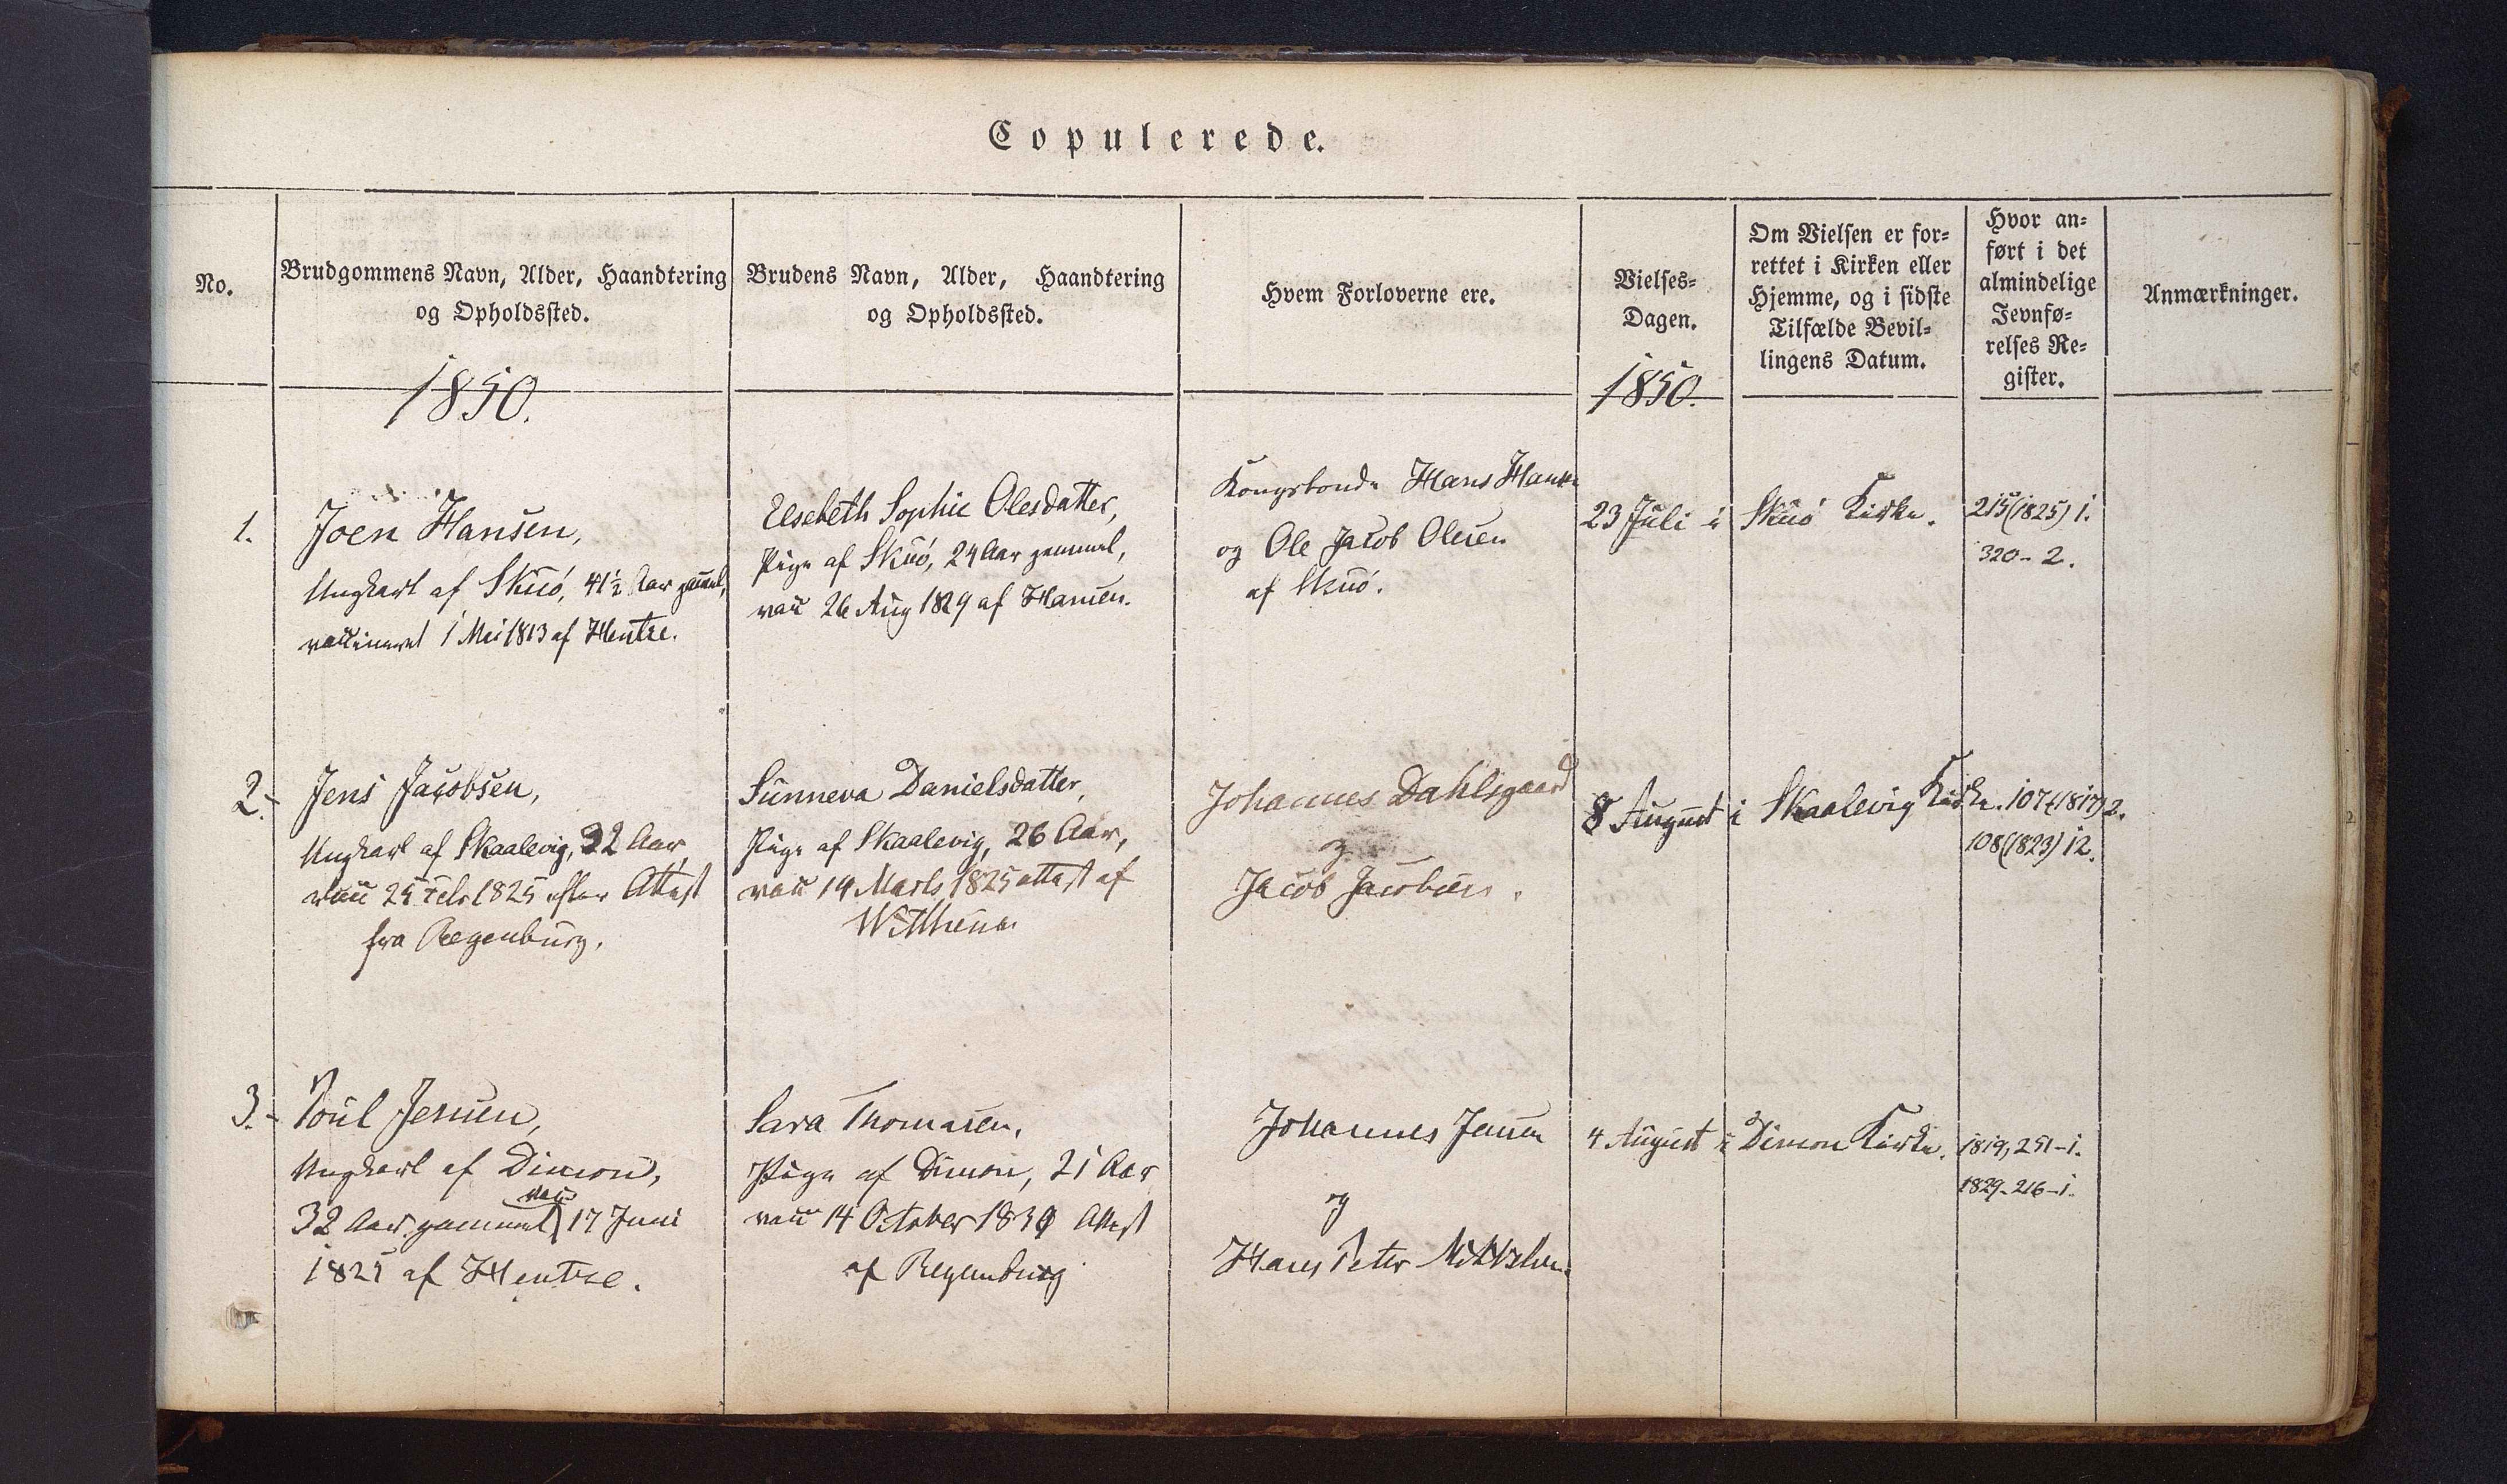 Copulerede.
No.
Brudgommens Navn, Alder, Haandtering
og Opholdssted.
Brudens Navn, Alder, Haandtering
og Opholdssted.
Hvem Forloverne ere.
Vielses-
Dagen.
Om Vielsen er for-
rettet i Kirken eller
Hjemme, og i sidste
Tilfælde Bevil-
lingens Datum.
Hvor an-
ført i det
almindelige
Jevnfø-
relses Re-
gister.
Anmærkninger.
1850.
1850.
1.
Joen Hansen,
Ungkarl af Skuö, 41½ Aar gammel,
vaccineret 1 Mai 1813 af Hentze.
Elsebeth Sophie Olesdatter,
Pige af Skuö, 24 Aar gammel,
vacc 26 Aug 1829 af Hansen.
Kongsbonde Hans Hansen
og Ole Jacob Olesen
af Skuö.
23 Juli i
Skuö Kirke.
215(1825) 1.
320-2.
2.-
Jens Jacobsen,
Ungkarl af Skaalevig, 32 Aar
vacc 25 Febr 1825 efter Attest
fra Regenburg.
Sunneva Danielsdatter,
Pige af Skaalevig, 26 Aar,
vacc 14 Marts 1825 attest af
Johannes Dahlsgaard
og
Jacob Jacobsen.
8 August i
Skaalevig Kirke.
107(1817) 2.
108(1823) 12.
3.-
Poul Jensen,
Ungkarl af Dimon,
32 Aar gammel vacc 17 Juni
1825 af Hentze.
Sara Thomasen,
Pige af Dimon, 21 Aar
vacc 14 October 1830 Attest
af Regenburg
Johannes Jensen
og
Hans Peter
4 August i
Dimon Kirke.
1819, 251-1.
1829-216-1.